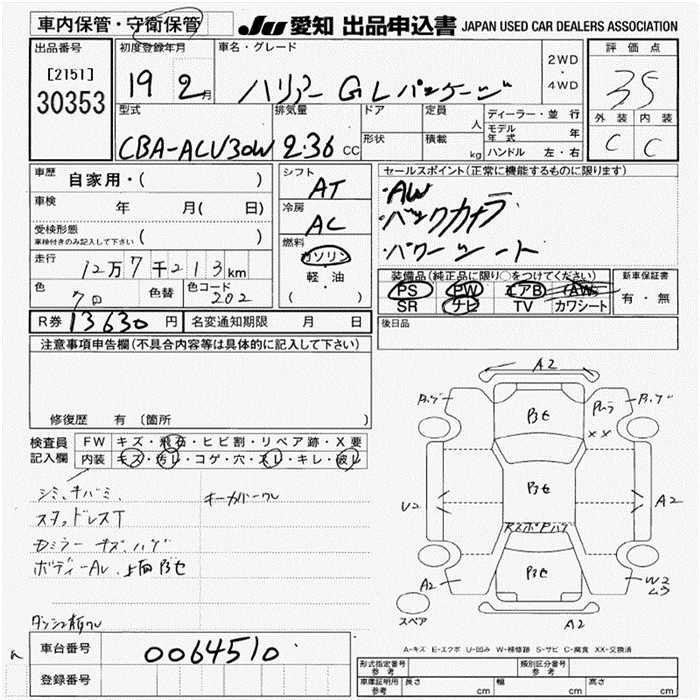 車内保管・守衛保管
JU 愛知 出品申込書 JAPAN USED CAR DEALERS ASSOCIATION
出品番号
[2151]
30353
初度登録年月
19 2月
車名・グレード
ハリアー GLパッケージ
2WD
・
4WD
評価点
35
外装 内装
C C
型式
CBA-ACU30W
排気量
2.36 CC
ドア
形状
定員 人
積載 kg
ディーラー・並行
モデル年式 年
ハンドル 左・右
車歴 自家用・( )
車検 年 月( 日)
受検形態
車検付きのみ記入して下さい ( )
走行 12万7千213km
色 色替 色コード 202
シフト AT
冷房 AC
燃料 ガソリン
・
軽・油
( )
セールスポイント(正常に機能するものに限ります)
・AW
・バックカメラ
・パワーシート
装備品(純正品に限り○をつけてください)
PS PW エアB AW
SR ナビ TV カワシート
新車保証書
有・無
後日品
R券 13630円 名変通知期限 月 日
注意事項申告欄(不具合内容等は具体的に記入して下さい)
修復歴 有 〔箇所 〕
検査員記入欄
FW キズ・飛石・ヒビ割・リペア跡・X要
内装 キズ・汚レ・コゲ・穴・スレ・キレ・破レ
シミ、キバミ、
キーカバーワレ
スタッドレスT
Dミラー キズ、ハゲ
ボディーAU、上面Bセ
A2
Bセ
XX
Bセ
U2
A2
Bセ
A2
W2
A2
スペア
A-キズ E-エクボ U-凹み W-補修跡 S-サビ C-腐食 XX-交換済
車台番号 0064510
登録番号
形式指定番号
参考
類別区分番号
参考
車庫証明用
参考
長さ cm 幅 cm 高さ cm